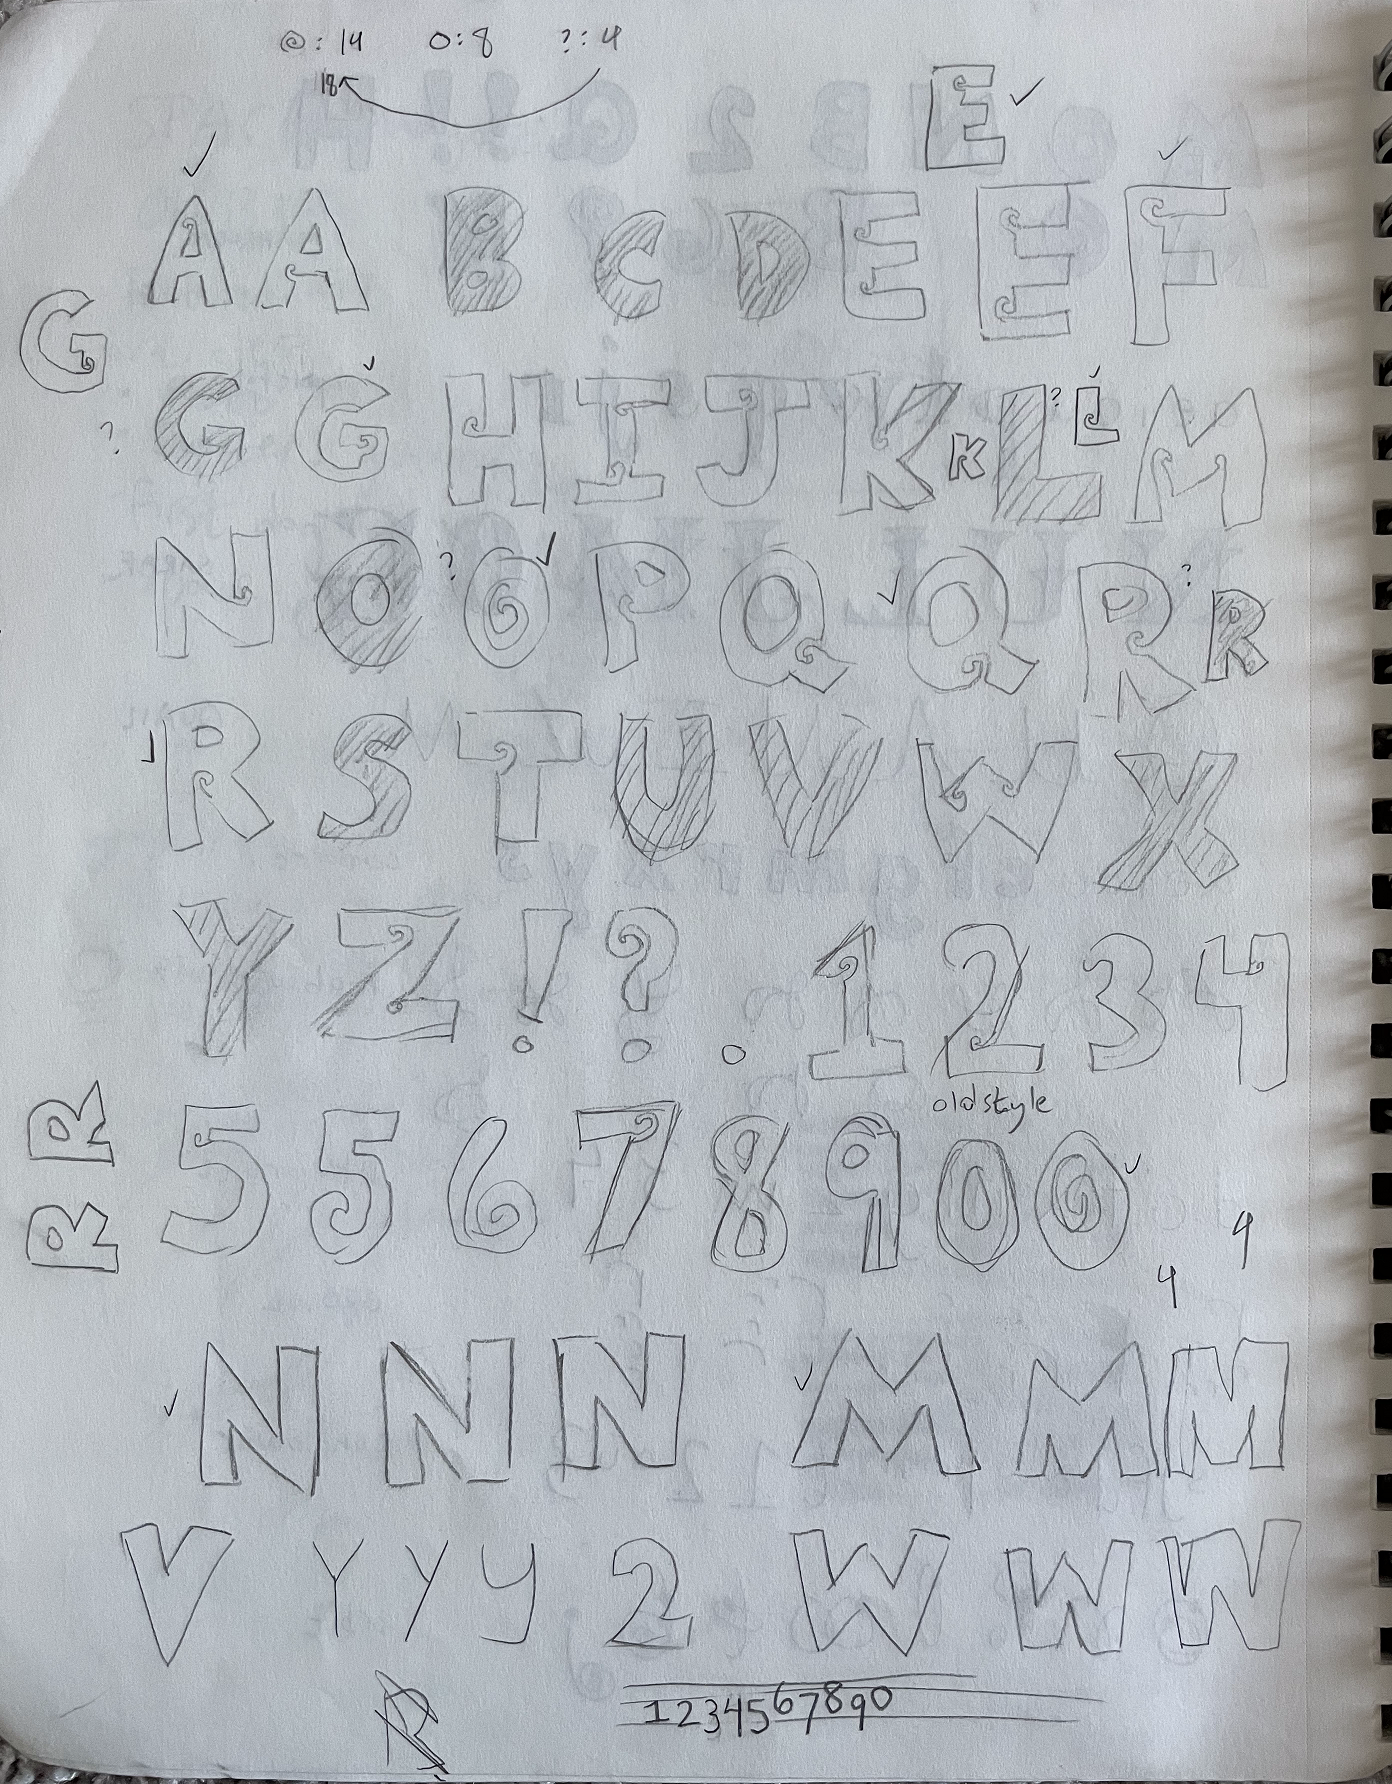 @: 14 O: 8 ?: 4
18
E ✓
✓ ✓
A A B C D E E F
G
? G G ✓ H I J K K L ? L ✓ M
N O ? O ✓ P Q ✓ Q R ? R
✓ R S T U V W X
Y Z ! ? . 1 2 3 4
oldstyle
R 5 5 6 7 8 9 0 0 ✓
R
4
4
✓ N N N ✓ M M M
V Y Y y 2 W W W
R
1234567890